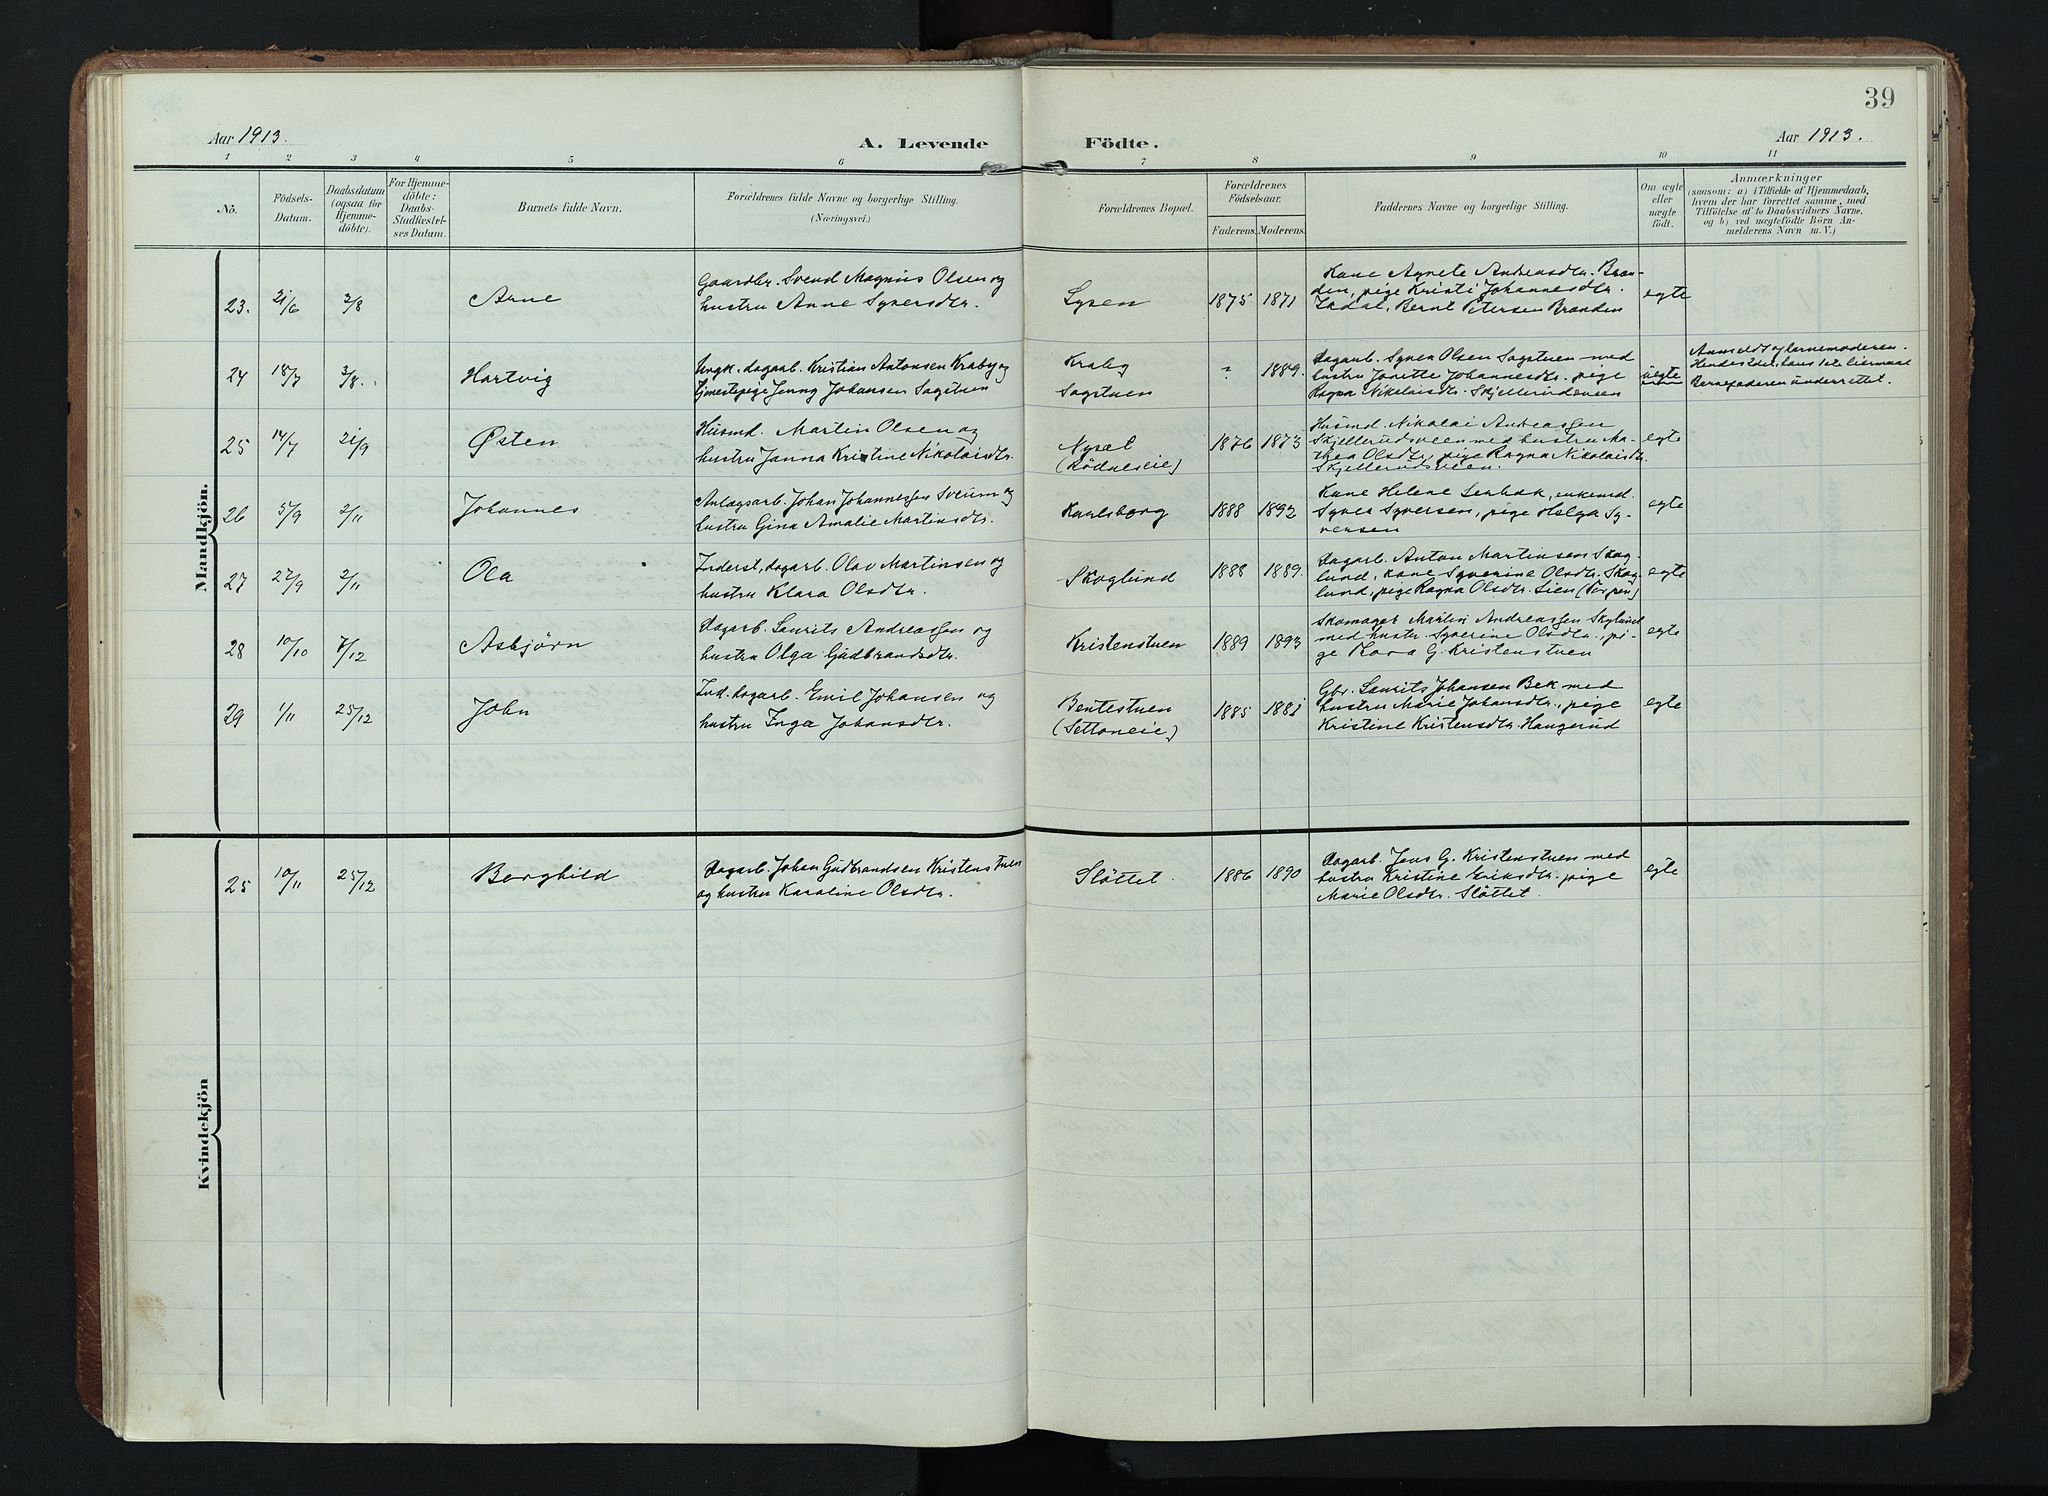 39
Aar 1913.
A. Levende
Födte.
Aar 1913.
1 2 3 4 5 6 7 8 9 10 11
No.
Födsels-
Datum.
Daabsdatum
(ogsaa for
Hjemme-
döbte).
For Hjemme-
döbte:
Daabs-
Stadfæstel-
ses Datum.
Barnets fulde Navn.
Forældrenes fulde Navne og borgerlige Stilling.
(Næringsvei.)
Forældrenes Bopæl.
Forældrenes
Födselsaar.
Faderens. Moderens.
Faddernes Navne og borgerlige Stilling.
Om ægte
eller
uægte
födt.
Anmærkninger
(saasom: a) i Tilfælde af Hjemmedaab,
hvem der har forrettet samme, med
Tilföielse af to Daabsvidners Navne,
og b) ved uægtefödte Börn An-
melderens Navn m. V.)
Mandkjön.
23. 21/6 3/8 Arne
Gaardbr. Svend Magnus Olsen og
hustru Anne Syversdtr.
Lysen 1875 1871
Kone Agnete Andreasdtr. Bran-
den, pige Kristi Johannesdtr.
Bernt Petersen Branden
egte
24 18/7 3/8. Hartvig
Ungk. dagarb. Kristian Antonsen Kraby og
tjenestepige Jenny Johansen Sagstuen
Kraby
Sagstuen
? 1889.
Dagarb. Syver Olsen Sagstuen med
hustru Jonette Johannesdtr. pige
Ragna Nikolaisdtr. Skjellerudsveen
uegte
Anmeldt af barnemoderen.
Hendes 2det, hans 1ste leiermaal
Barnefaderen underrettet.
25 14/7 21/9 Østen
Husmd. Martin Olsen og
hustru Janna Kristine Nikolaisdtr.
Nyset
(Rödneseie)
1876 1873
Husmd. Nikolai Andreassen
Skjellerudsveen med hustru Ma-
thea Olsdtr, pige Ragna Nikolaisdtr.
Skjellerudsveen.
egte
26 5/9 2/11 Johannes
Anlægsarb. Johan Johannessen Sveum og
hustru Gina Amalie Martinsdtr.
Karlsborg 1888 1892
Kone Helene enkemd.
Syver Syversen, pige Helga Sy-
versen
egte
27 27/9 2/11 Ola
Inderst, dagarb. Olav Martinsen og
hustru Klara Olsdtr.
Skoglund 1888 1889.
Dagarb. Anton Martinsen Skog-
lund, kone Syverine Olsdtr. Skog-
lund, pige Ragna Olsdtr. Lien (Torpen)
egte
28 10/10 7/12 Asbjørn
Dagarb. Laurits Andreassen og
hustru Olga Gudbrandsdtr.
Kristenstuen 1889 1893
Skomager Martin Andreassen
med hustr. Syverine Olsdtr., pi-
ge Kora G. Kristenstuen
egte
29 1/11 25/12 John
Ind. dagarb. Emil Johansen og
hustru Inga Johansdtr.
Bentestuen
(Settoneie)
1885 1881
Gbr. Laurits Johansen Bek med
hustru Marie Johansdtr., pige
Kristine Kristensdtr. Haugerud
egte
Kvindekjön
25 10/11 25/12 Borghild
Dagarb. Johan Gudbrandsen Kristenstuen
og hustru Karoline Olsdtr.
Slöttet. 1886 1890
Dagarb. Jens G. Kristenstuen med
hustru Kristine Eriksdtr. pige
Marie Olsdtr. Slöttet.
egte